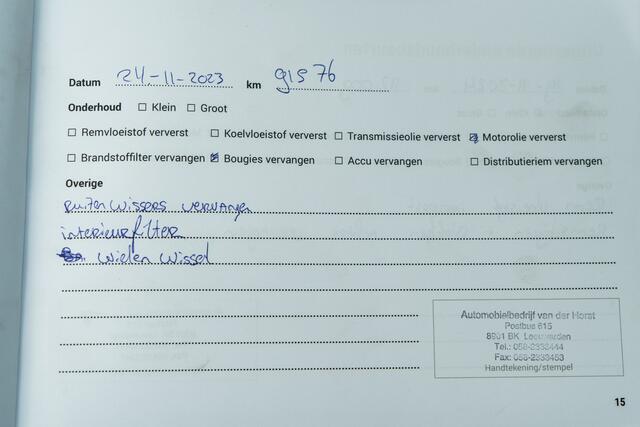 Datum 24-11-2023 km 91576
Onderhoud ☐ Klein ☐ Groot
☐ Remvloeistof ververst ☐ Koelvloeistof ververst ☐ Transmissieolie ververst ☑ Motorolie ververst
☐ Brandstoffilter vervangen ☑ Bougies vervangen ☐ Accu vervangen ☐ Distributieriem vervangen
Overige
ruitenwissers vervangen
interieurfilter
wielen wissel
Automobielbedrijf van der Horst
Postbus 615
8901 BK Leeuwarden
Tel.: 058-2333444
Fax: 058-2333453
Handtekening/stempel
15